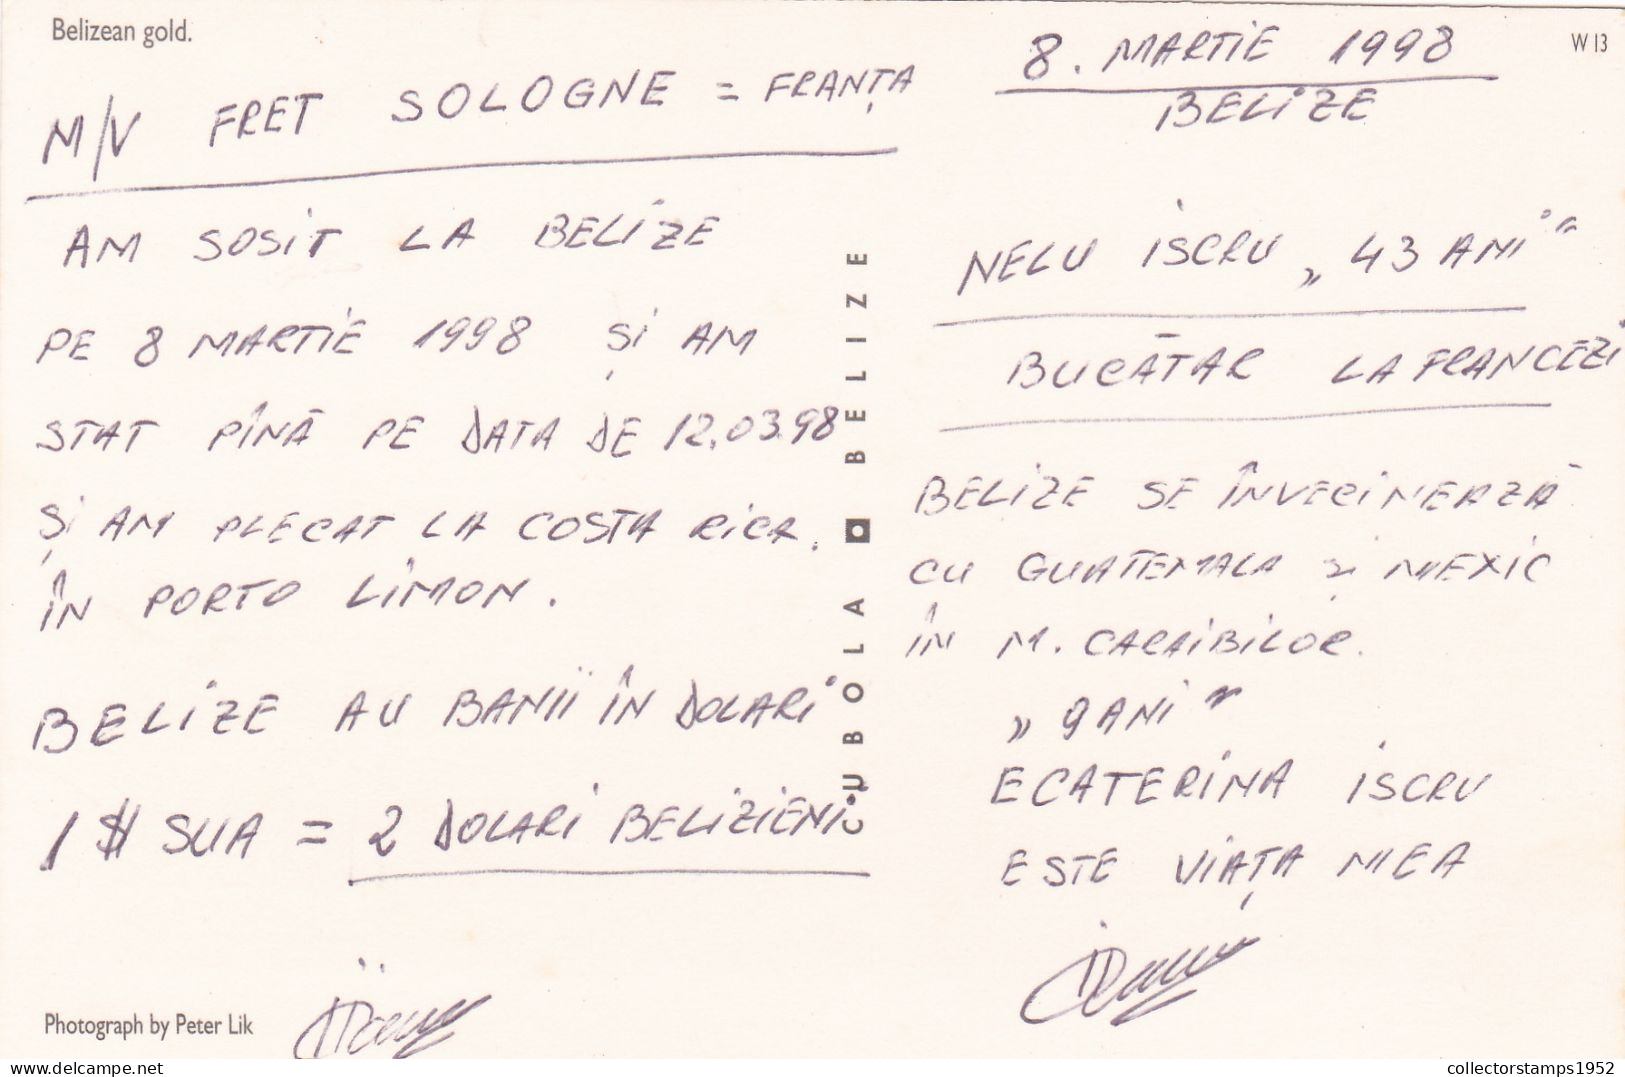 Belizean gold.
M/V FRET SOLOGNE = FRANȚA
AM SOSIT LA BELIZE
PE 8 MARTIE 1998 ȘI AM
STAT PÎNĂ PE DATA DE 12.03.98
ȘI AM PLECAT LA COSTA RICA.
ÎN PORTO LIMON.
BELIZE AU BANII ÎN DOLARI
1 $ SUA = 2 DOLARI BELIZIENI.
Photograph by Peter Lik
CUBOLA BELIZE
W13
8. MARTIE 1998
BELIZE
NELU ISCRU „43 ANI“
BUCĂTAR LA FRANCEZI
BELIZE SE ÎNVECINEAZĂ
CU GUATEMALA ȘI MEXIC
ÎN M. CARAIBILOR.
„9 ANI“
ECATERINA ISCRU
ESTE VIAȚA MEA
collectorstamps1952